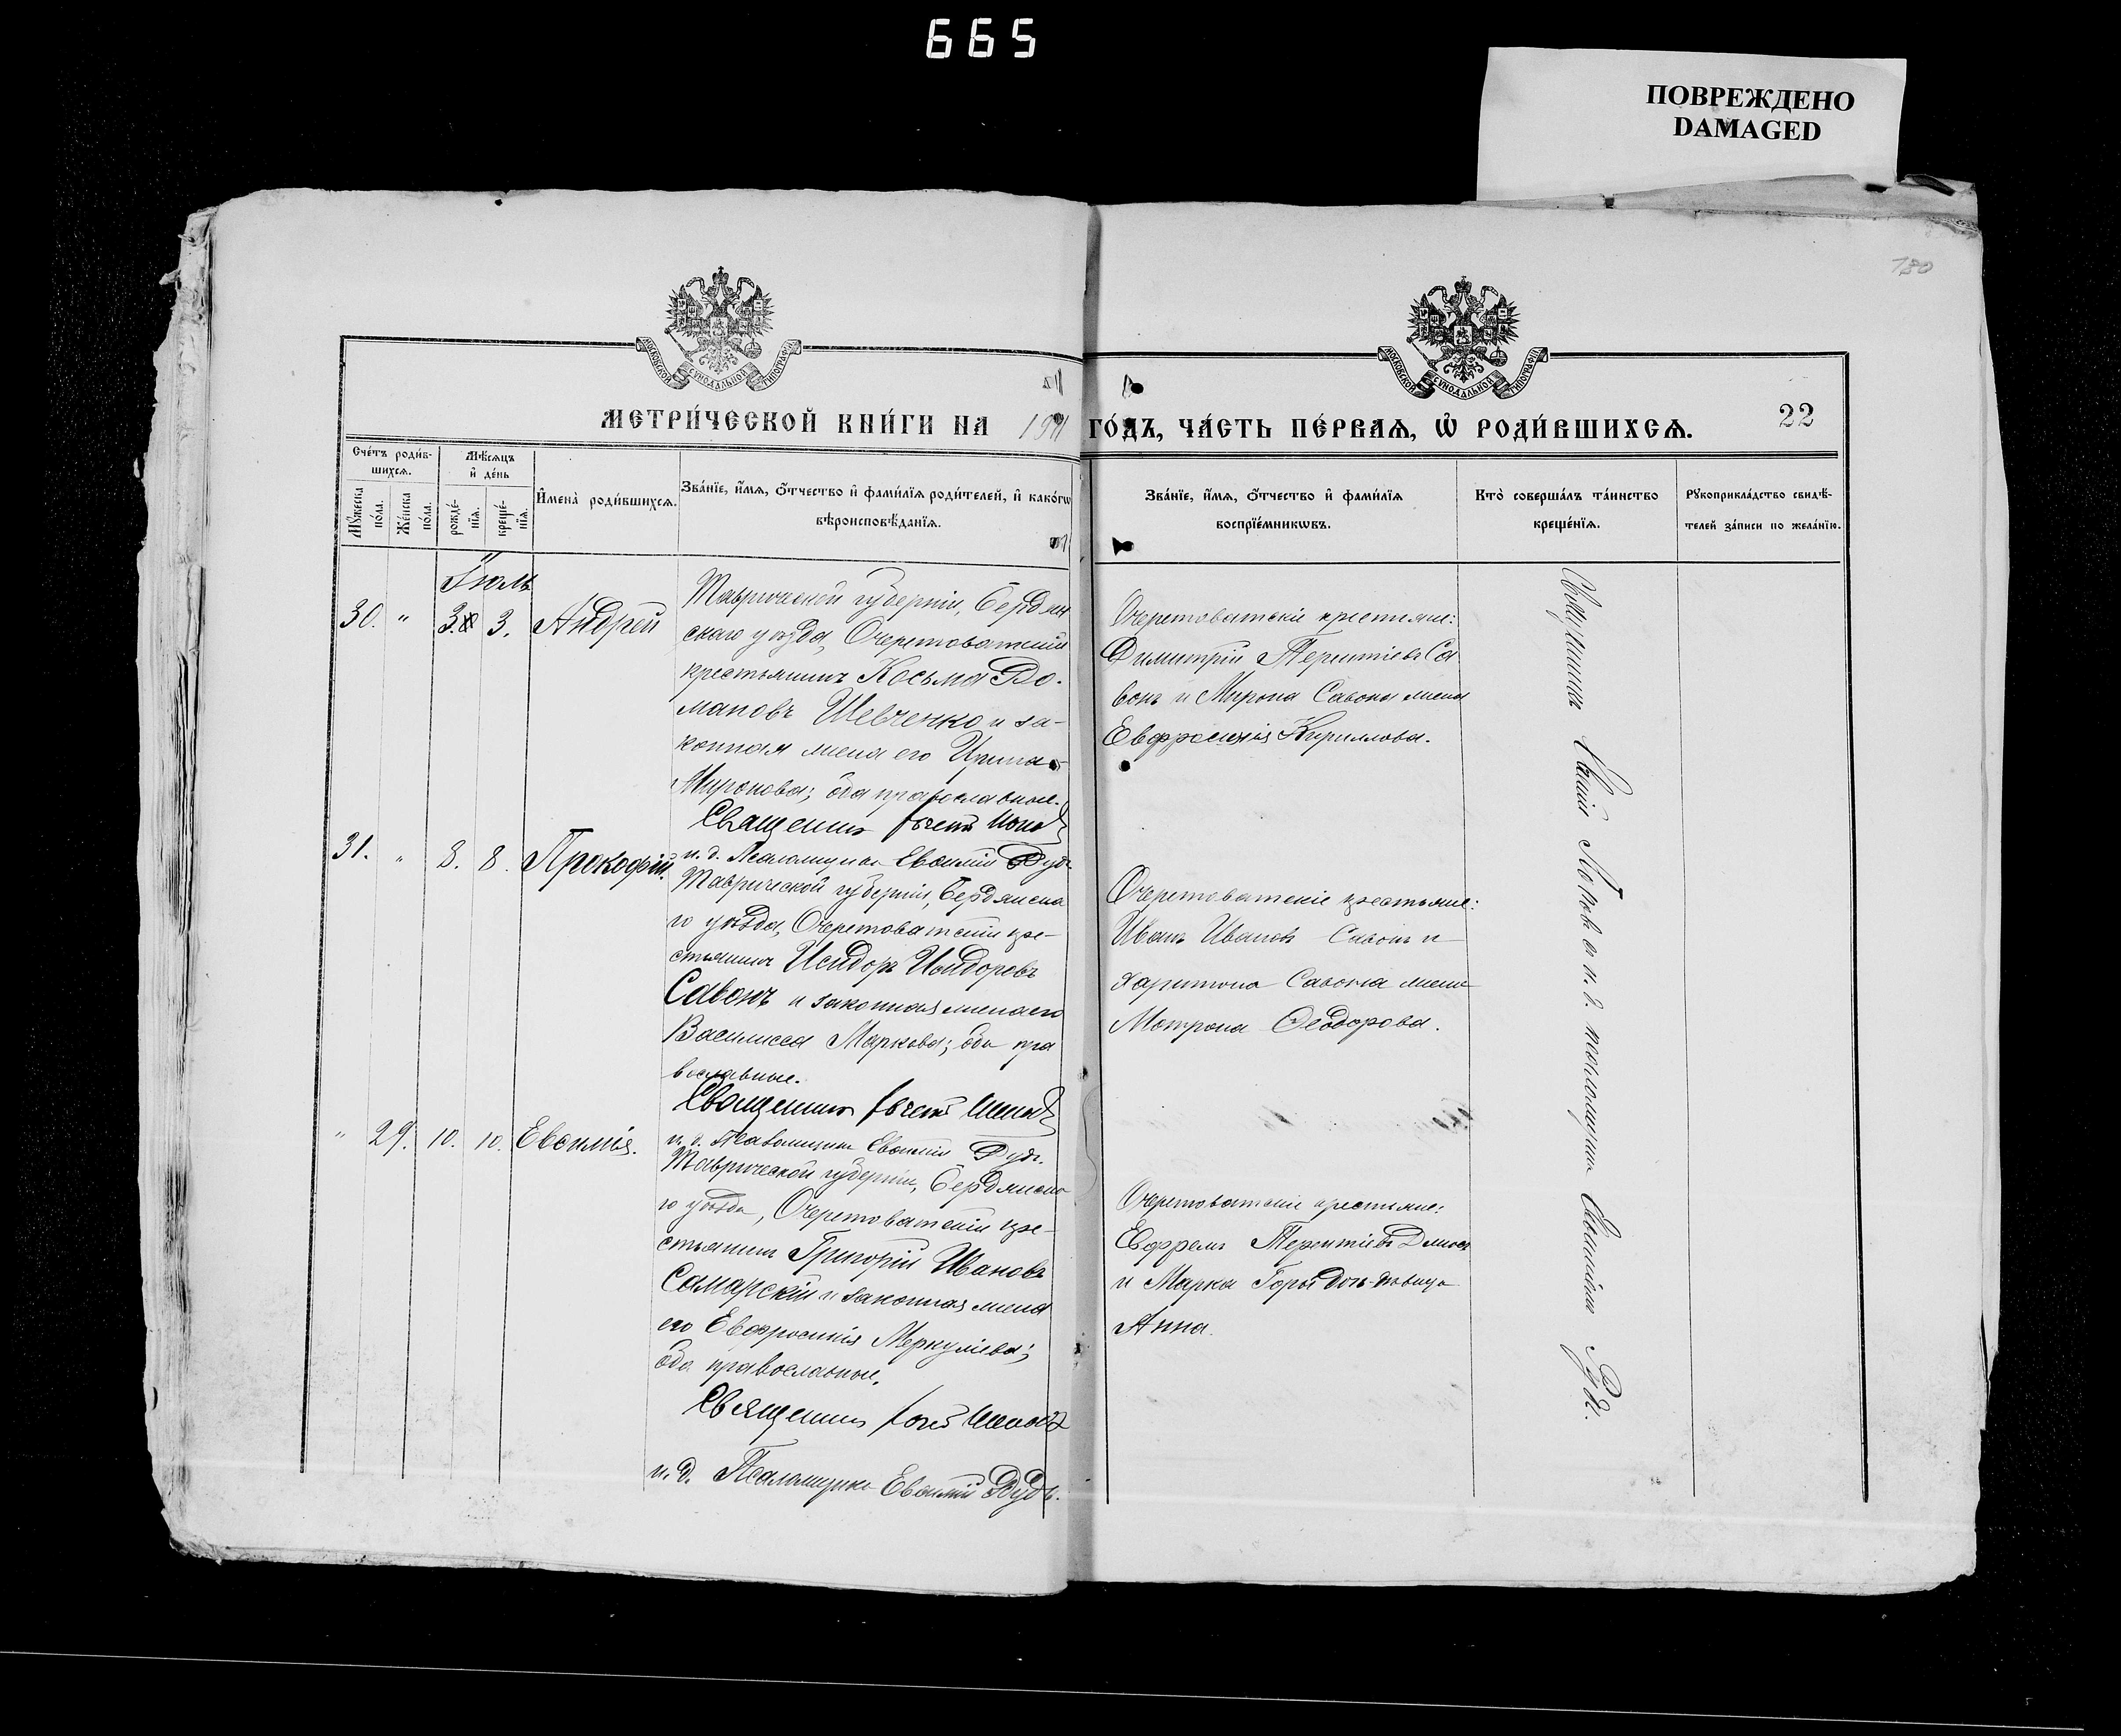 665
ПОВРЕЖДЕНО
DAMAGED
180
МОСКОВСКОЙ СѴНОДАЛЬНОЙ ТИПОГРАФІИ
МОСКОВСКОЙ СѴНОДАЛЬНОЙ ТИПОГРАФІИ
МЕТРИ́ЧЕСКОЙ КНИ́ГИ НА
ГО́ДЪ, ЧА́СТЬ ПЕ́РВАѦ, Ѡ҆ РОДИ́ВШИХСѦ.
22
Сче́тъ роди́в-
шихсѧ.
Мꙋ́жеска
по́ла.
Же́нска
по́ла.
Мѣ́сѧцъ
и҆ де́нь
рожде́-
нїѧ.
креще́-
нїѧ.
И҆мена̀ роди́вшихсѧ.
Зва́нїе, и҆́мѧ, ѻ҆́тчество и҆ фами́лїѧ роди́телей, и҆ како́гѡ
вѣроисповѣ́данїѧ.
Зва́нїе, и҆́мѧ, ѻ҆́тчество и҆ фами́лїѧ
воспрїе́мникѡвъ.
Кто̀ соверша́лъ та́инство
креще́нїѧ.
Рꙋкоприкла́дство свидѣ́-
телей за́писи по жела́нїю.
Іюль
30. " 3. 3. Андрей
Таврической губерніи, Бердян
скаго уѣзда, Очеретоватскій
крестьянинъ Косьма Ро-
мановъ Шевченко и за-
конная жена его Ирина
Миронова; оба православные.
Священникъ
и. д. Псаломщика Евѳимій Рудь.
Очеретоватскіе крестьяне:
Димитрій Терентіевъ Са
вонъ и Мирона Савона жена
Евфросинія Кириллова.
31. " 8. 8. Прокофій.
Таврической губерніи, Бердянска
го уѣзда, Очеретоватскій кре-
стьянинъ Исидоръ Исидоровъ
Савонъ и законная жена его
Василисса Маркова; оба пра
вославные.
Священникъ
и. д. Псаломщика Евѳимій Рудь.
Очеретоватскіе крестьяне:
Иванъ Ивановъ Савонъ и
Харитона Савона жена
Мотрона Ѳеодорова.
" 29. 10. 10. Евѳимія.
Таврической губерніи, Бердянска
го уѣзда, Очеретоватскій кре-
стьянинъ Григорій Ивановъ
Самарскій и законная жена
его Евфросинія Меркуліева;
оба православные.
Священникъ
и. д. Псаломщика Евѳимій Рудь.
Очеретоватскіе крестьяне:
Ефремъ Терентіевъ
и Марка дѣвица
Анна.
Священникъ Поповъ и. д. псаломщика Евѳиміемъ Рудь.